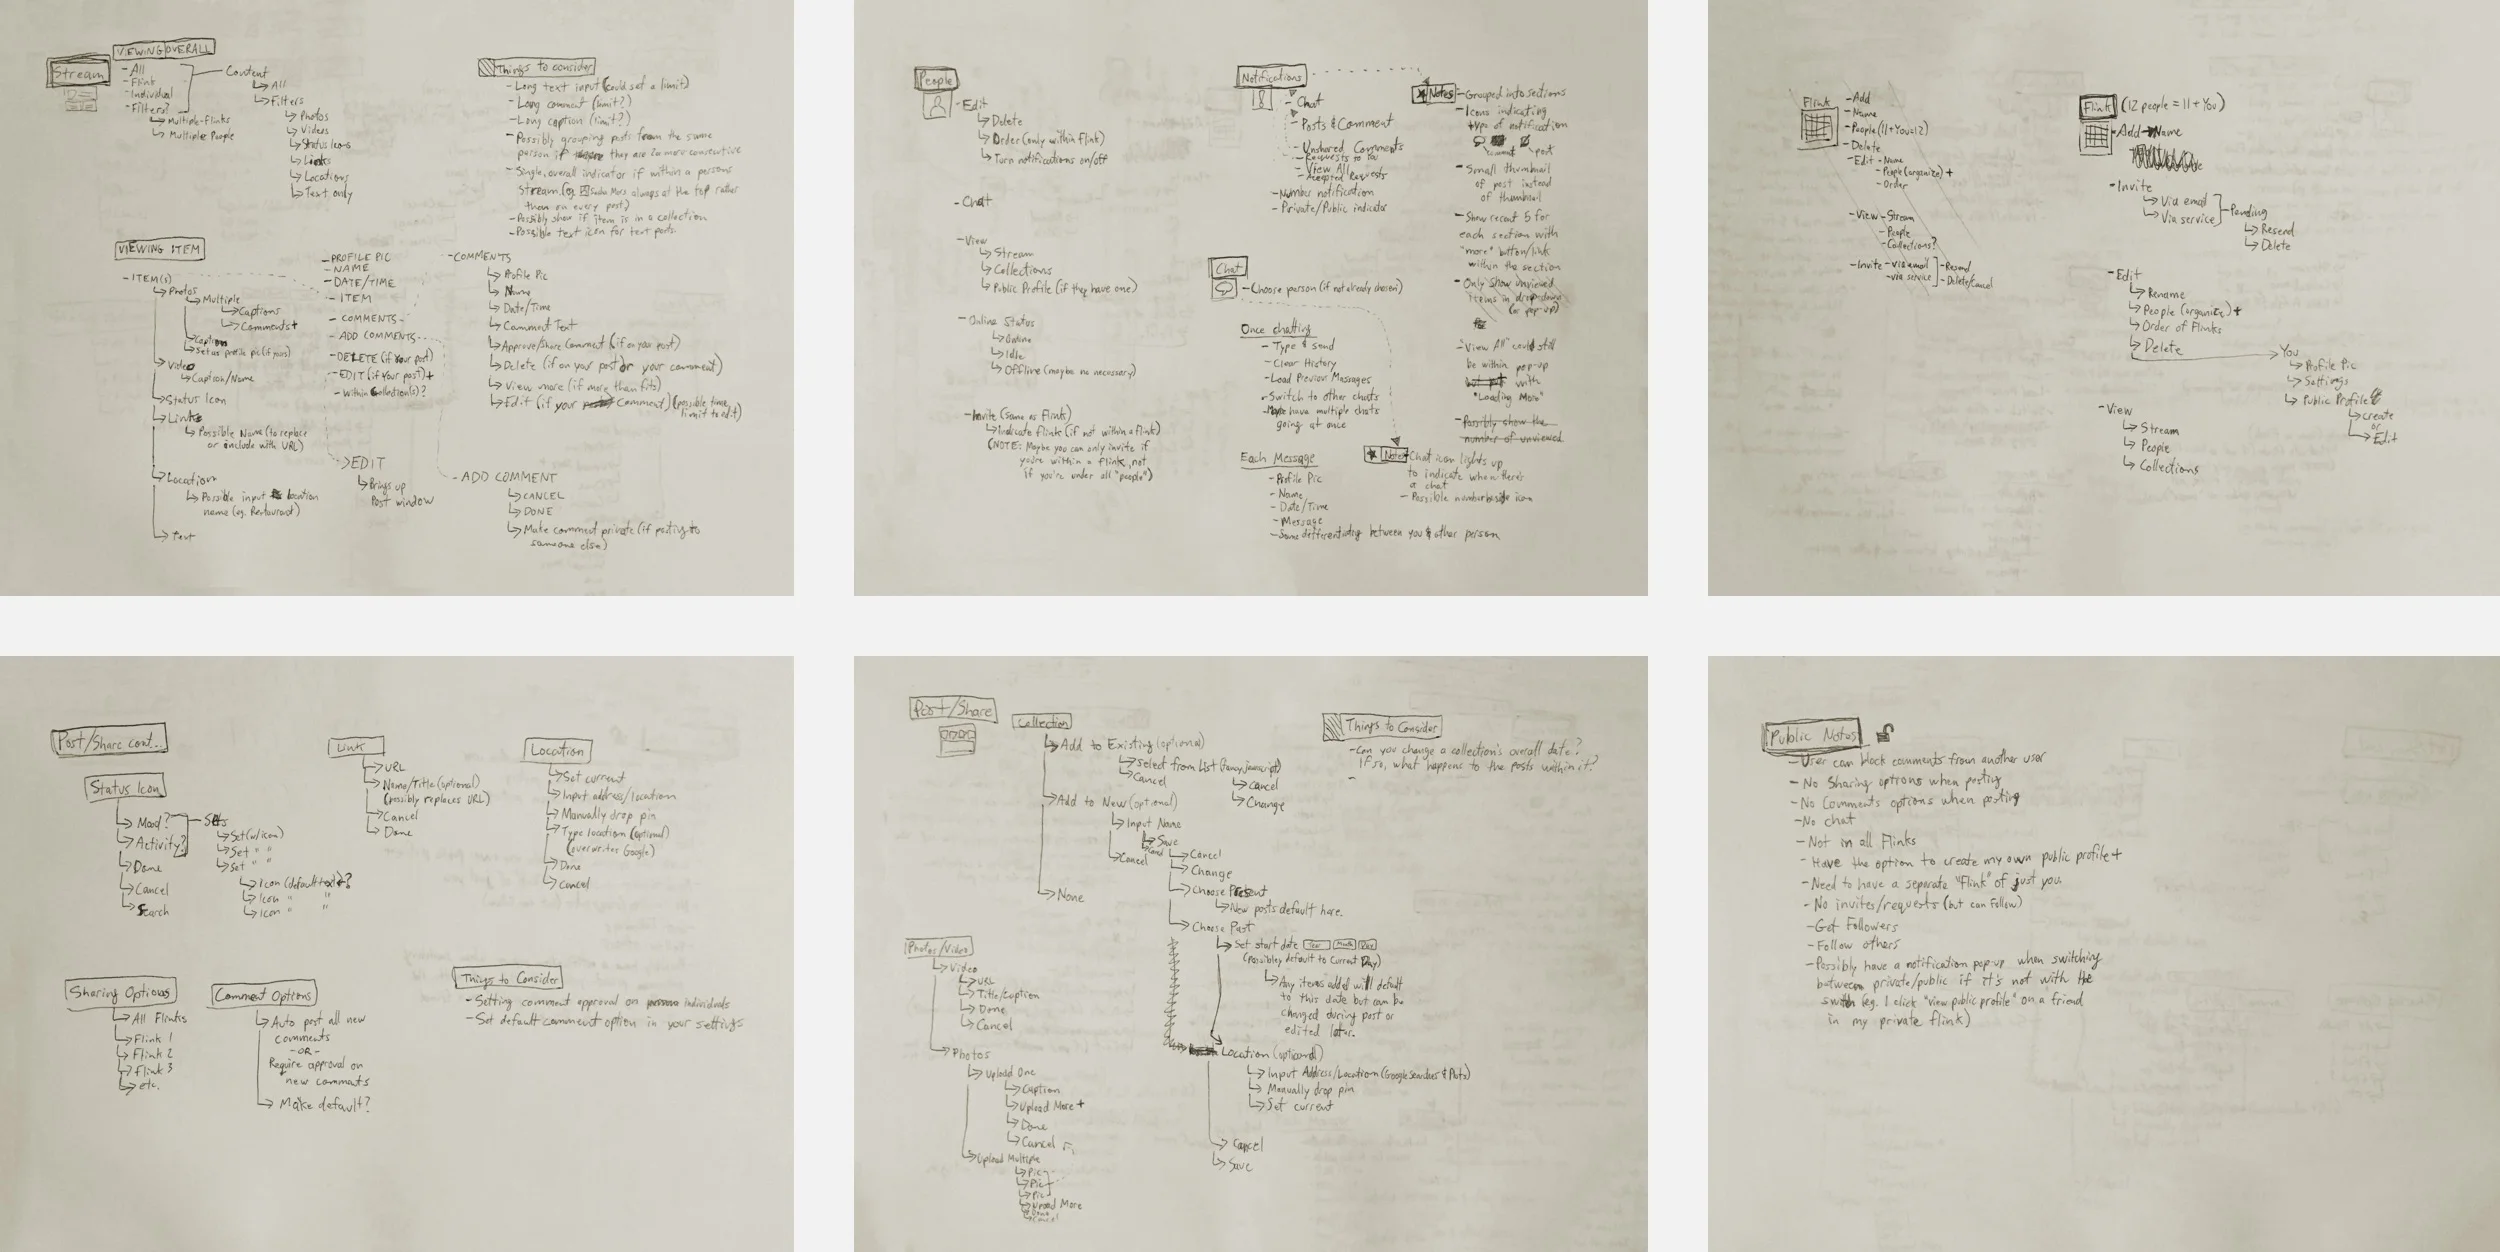 Stream
VIEWING OVERALL
- All
- Flink
- Individual
- Filters?
Multiple Flinks
Multiple People
Content
All
Filters
Photos
Videos
Status Icons
Links
Locations
Text only
Things to consider
- Long text input (could set a limit)
- Long comment (limit?)
- Long caption (limit?)
- Possibly grouping posts from the same
person if they are 2 or more consecutive
- Single, overall indicator if within a persons
stream (eg. always at the top rather
then on every post)
- Possibly show if item is in a collection
- Possible text icon for text posts.
VIEWING ITEM
- ITEM(S)
Photos
Multiple
Captions
Comments+
Caption
Set as profile pic (if yours)
Video
Caption/Name
Status Icon
Links
Possible Name (to replace
or include with URL)
Location
Possible input location
name (eg. Restaurant)
Text
- PROFILE PIC
- NAME
- DATE/TIME
- ITEM
- COMMENTS
- ADD COMMENTS
- DELETE (if your post)
- EDIT (if your post)+
- within Collection(s)?
EDIT
Brings up
Post window
- COMMENTS
Profile Pic
Name
Date/Time
Comment Text
Approve/Share Comment (if on your post)
Delete (if on your post or your comment)
View more (if more than fits)
Edit (if your Comment) (possible time
limit to edit)
- ADD COMMENT
CANCEL
DONE
Make comment private (if posting to
someone else)
People
- Edit
Delete
Order (only within flink)
Turn notifications on/off
- Chat
- View
Stream
Collections
Public Profile (if they have one)
- Online Status
Online
Idle
Offline (maybe no necessary)
- Invite (same as Flink)
Indicate flink (if not within a flink)
(NOTE: Maybe you can only invite if
you're within a flink, not
if you're under all "people")
Notifications
- Chat
- Posts & Comment
- Unshared Comments
- Requests to You
- View All
- Accepted Requests
- Number notification
- Private/Public indicator
Notes
- Grouped into sections
- Icons indicating
type of notification
comment post
- Small thumbnail
of post instead
of thumbnail
- Show recent 5 for
each section with
"more" button/link
within the section
- Only show unviewed
items in drop-down
(or pop-up)
- "View All" could still
be within pop-up
with
"Loading More"
- Possibly show the
number of unviewed
Chat
- Choose person (if not already chosen)
Once chatting
- Type & send
- Clear History
- Load Previous Messages
- Switch to other chats
- Maybe have multiple chats
going at once
Each Message
- Profile Pic
- Name
- Date/Time
- Message
- Some differentiating between you & other person
Notes
- Chat icon lights up
to indicate when there's
a chat
- Possible number beside icon
Flink
- Add
- Name
- People (11+You=12)
- Delete
- Edit - Name
- People (organize) +
- Order
- View - Stream
- People
- Collections?
- Invite - via email
- via service
- Resend
- Delete/Cancel
Flink (12 people = 11 + You)
- Add Name
- Invite
Via email
Via service
Pending
Resend
Delete
- Edit
Rename
People (organize) +
Order of Flinks
Delete
- View
Stream
People
Collections
You
Profile Pic
Settings
Public Profile
create
or
Edit
Post/Share cont...
Status Icon
Mood?
Activity?
Done
Cancel
Search
Sets
Set (w/icon)
Set " "
Set " "
Icon (default text)?
Icon " "
Icon " "
Link
URL
Name/Title (optional)
(possibly replaces URL)
Cancel
Done
Location
Set current
Input address/location
Manually drop pin
Type location (optional)
(overwrites Google)
Done
Cancel
Sharing Options
All Flinks
Flink 1
Flink 2
Flink 3
etc.
Comment Options
Auto post all new
comments
- OR -
Require approval on
new comments
Make default?
Things to Consider
- Setting comment approval on individuals
- Set default comment option in your settings
Post/Share
Collection
Add to Existing (optional)
Select from List (fancy javascript)
Cancel
Cancel
Change
Add to New (optional)
Input Name
Save
Cancel
Cancel
Cancel
Change
Choose Present
New posts default here.
Choose Past
Set start date Year Month Day
(possibley default to Current Day)
Any items added will default
to this date but can be
changed during post or
edited later.
Location (optional)
Input Address/Location (Google searches & Plots)
Manually drop pin
Set current
Cancel
Save
None
Photos/Video
Video
URL
Title/Caption
Done
Cancel
Photos
Upload One
Caption
Upload More +
Done
Cancel
Upload Multiple
Pic
Pic
Pic
Upload More
Done
Cancel
Things to Consider
- Can you change a collection's overall date?
If so, what happens to the posts within it?
-
Public Notes
- User can block comments from another user
- No Sharing options when posting
- No Comments options when posting
- No chat
- Not in all Flinks
- Have the option to create my own public profile +
- Need to have a separate "Flink" of just you.
- No invites/requests (but can follow)
- Get Followers
- Follow others
- Possibly have a notification pop-up when switching
between private/public if it's not with the
switch (eg. I click "view public profile" on a friend
in my private flink)